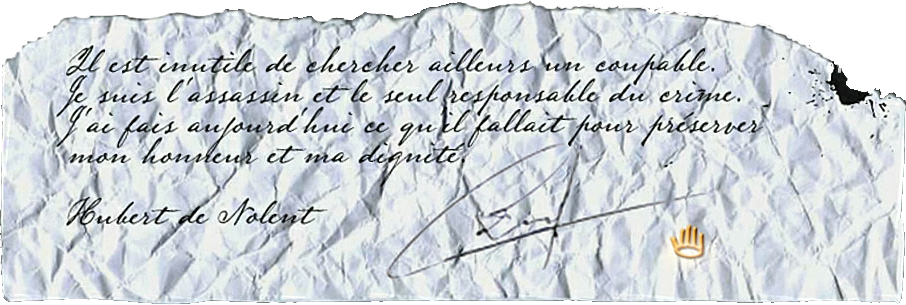 Il est inutile de chercher ailleurs un coupable.
Je suis l'assassin et le seul responsable du crime.
J'ai fais aujourd'hui ce qu'il fallait pour préserver
mon honneur et ma dignité.
Hubert de Nolent